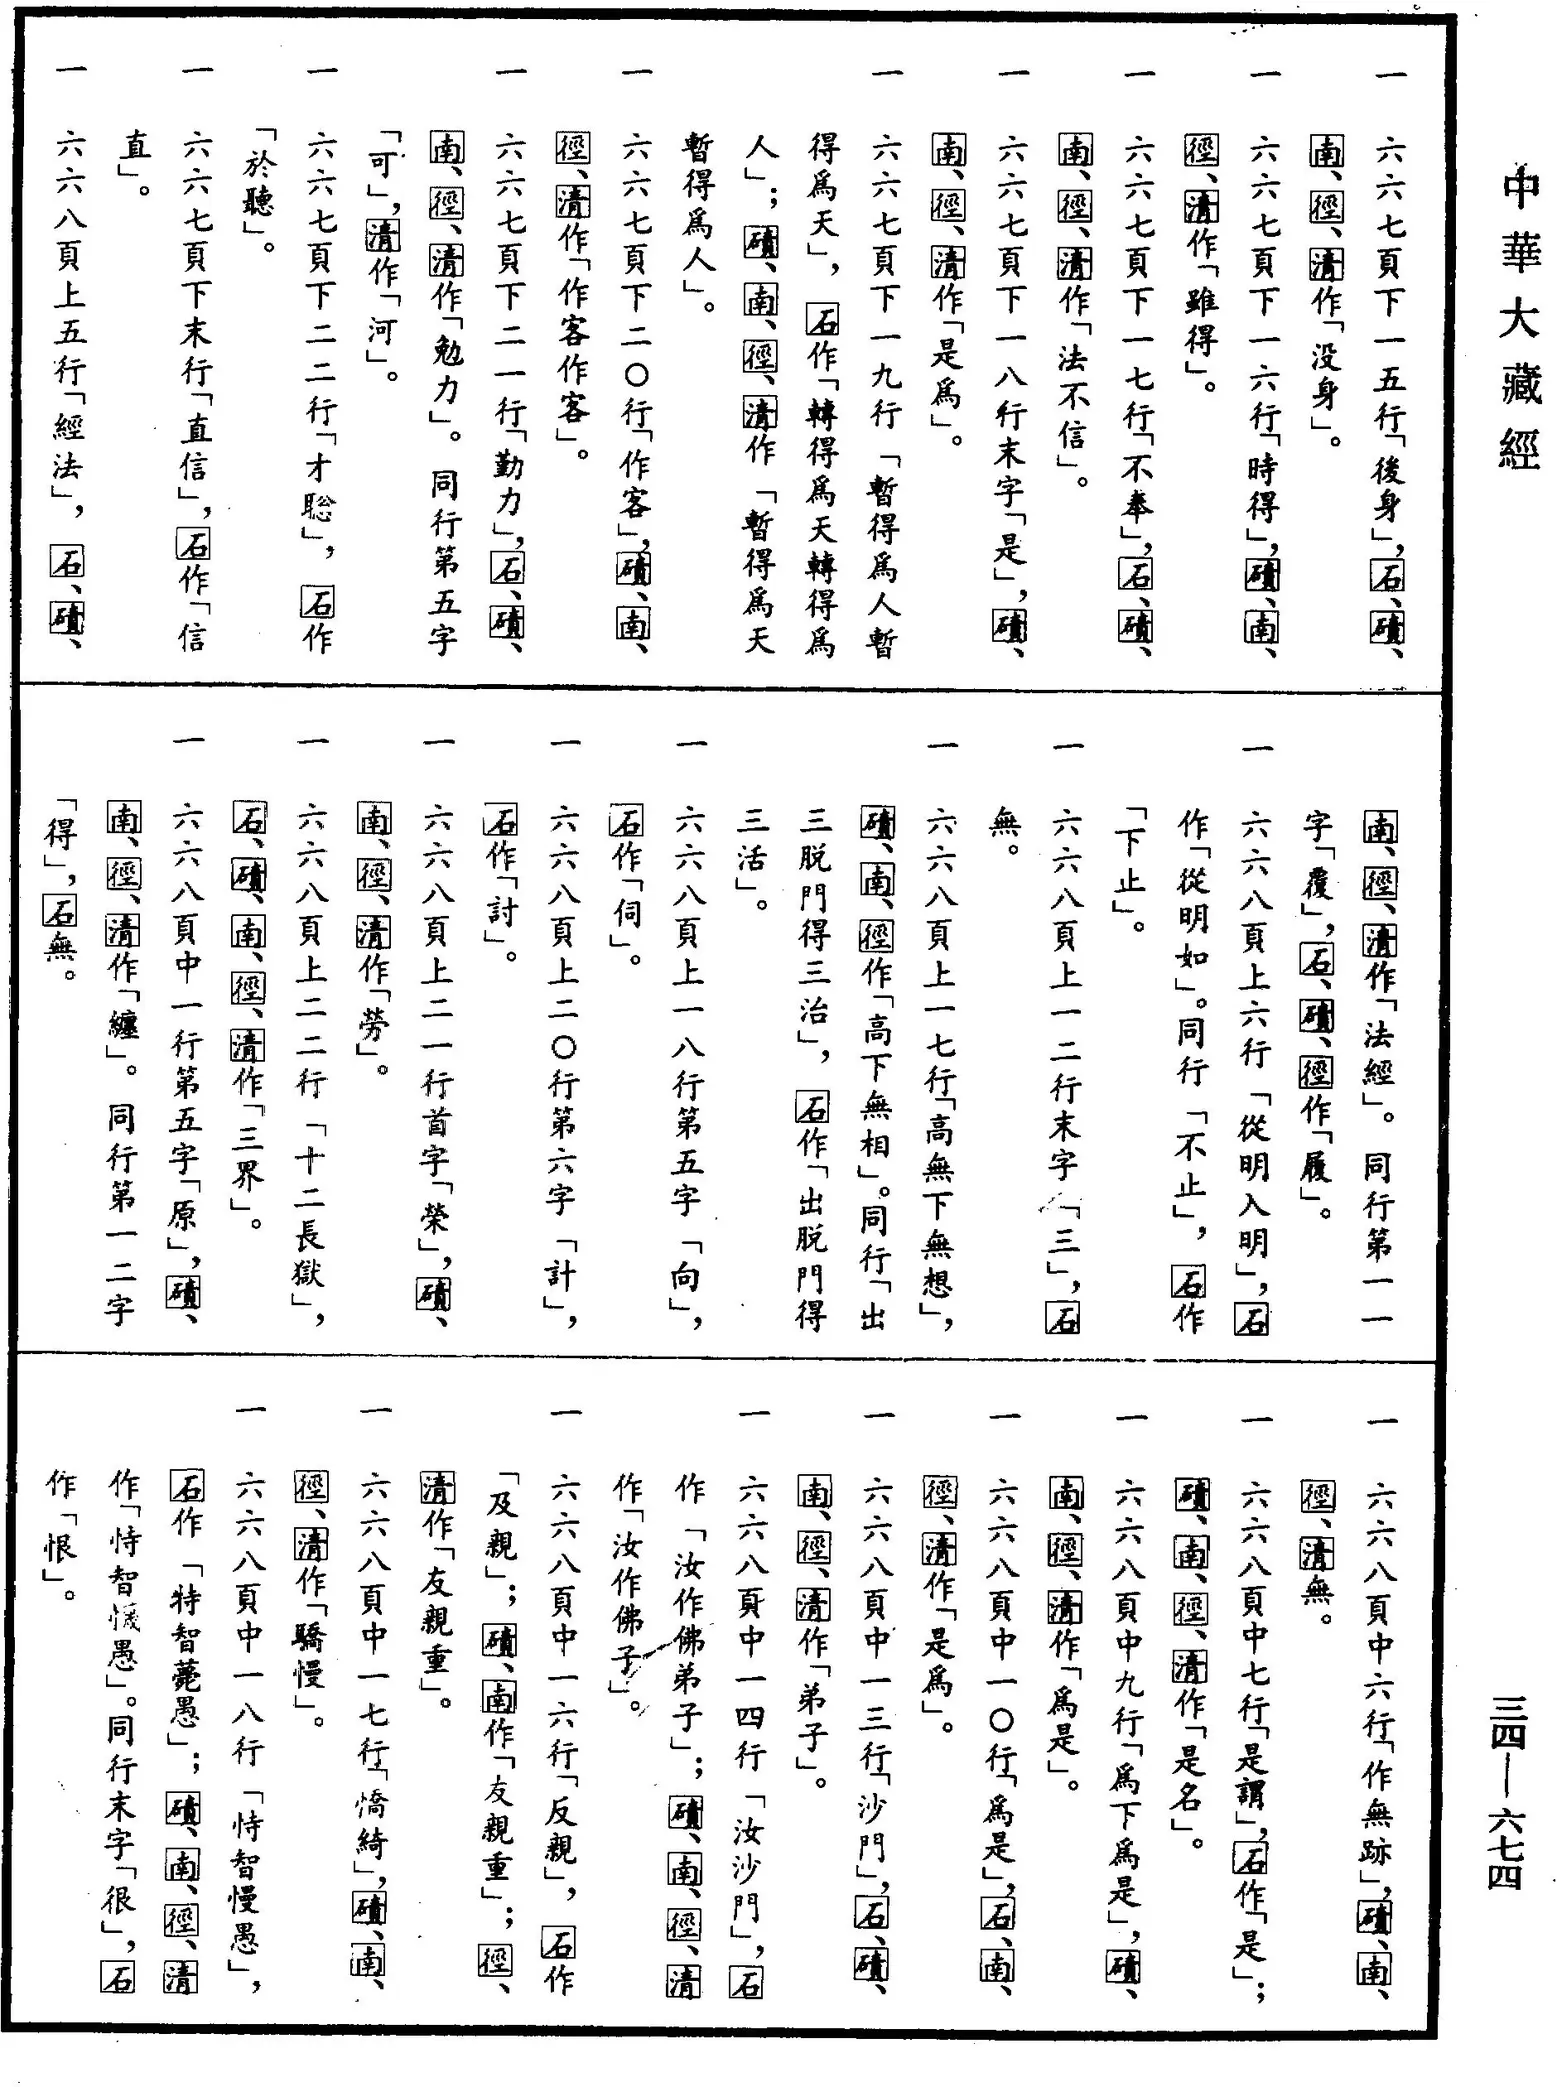 中華大藏經
一　六六七頁下一五行「後身」，石、磧、
南、徑、清作「没身」。
一　六六七頁下一六行「時得」，磧、南、
徑、清作「雖得」。
一　六六七頁下一七行「不奉」，石、磧、
南、徑、清作「法不信」。
一　六六七頁下一八行末字「是」，磧、
南、徑、清作「是爲」。
一　六六七頁下一九行「暫得爲人暫
得爲天」，石作「轉得爲天轉得爲
人」；磧、南、徑、清作「暫得爲天
暫得爲人」。
一　六六七頁下二〇行「作客」，磧、南、
徑、清作「作客作客」。
一　六六七頁下二一行「勤力」，石、磧、
南、徑、清作「勉力」。同行第五字
「可」，清作「河」。
一　六六七頁下二二行「才聡」，石作
「於聽」。
一　六六七頁下末行「直信」，石作「信
直」。
一　六六八頁上五行「經法」，石、磧、
南、徑、清作「法經」。同行第一一
字「覆」，石、磧、徑作「履」。
一　六六八頁上六行「從明入明」，石
作「從明如」。同行「不止」，石作
「下止」。
一　六六八頁上一二行末字「三」，石
無。
一　六六八頁上一七行「高無下無想」，
磧、南、徑作「高下無相」。同行「出
三脱門得三治」，石作「出脱門得
三活」。
一　六六八頁上一八行第五字「向」，
石作「伺」。
一　六六八頁上二〇行第六字「計」，
石作「討」。
一　六六八頁上二一行首字「榮」，磧、
南、徑、清作「勞」。
一　六六八頁上二二行「十二長獄」，
石、磧、南、徑、清作「三界」。
一　六六八頁中一行第五字「原」，磧、
南、徑、清作「纏」。同行第一二字
「得」，石無。
一　六六八頁中六行「作無跡」，磧、南、
徑、清無。
一　六六八頁中七行「是謂」，石作「是」；
磧、南、徑、清作「是名」。
一　六六八頁中九行「爲下爲是」，磧、
南、徑、清作「爲是」。
一　六六八頁中一〇行「爲是」，石、南、
徑、清作「是爲」。
一　六六八頁中一三行「沙門」，石、磧、
南、徑、清作「弟子」。
一　六六八頁中一四行「汝沙門」，石
作「汝作佛弟子」；磧、南、徑、清
作「汝作佛子」。
一　六六八頁中一六行「反親」，石作
「及親」；磧、南作「友親重」；徑、
清作「友親重」。
一　六六八頁中一七行「憍綺」，磧、南、
徑、清作「驕慢」。
一　六六八頁中一八行「恃智慢愚」，
石作「特智薨愚」；磧、南、徑、清
作「恃智懱愚」。同行末字「很」，石
作「恨」。
三四—六七四